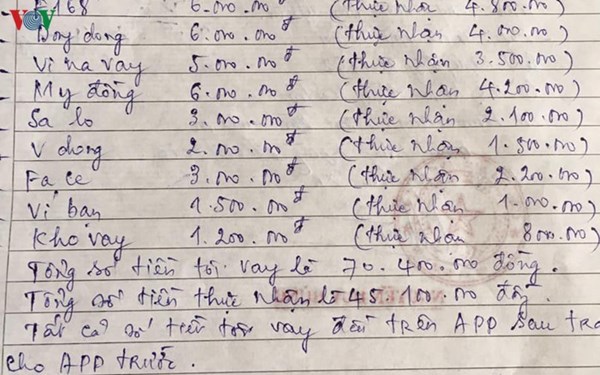 VOV
168 6.000.000đ (thực nhận 4.800.000)
Dong dong 6.000.000đ (thực nhận 4.000.000)
Vi na vay 5.000.000đ (thực nhận 3.500.000)
My đồng 6.000.000đ (thực nhận 4.200.000)
Sa lo 3.000.000đ (thực nhận 2.100.000)
V dong 2.000.000đ (thực nhận 1.300.000)
Fa ce 3.000.000đ (thực nhận 2.200.000)
Vi bạn 1.500.000đ (thực nhận 1.000.000)
Kho vay 1.200.000đ (thực nhận 800.000)
Tổng số tiền tôi vay là 70.400.000 đồng.
Tổng số tiền thực nhận là 45.100.000 đồng.
Tất cả số tiền tôi vay đều trên APP sau trả
cho APP trước.